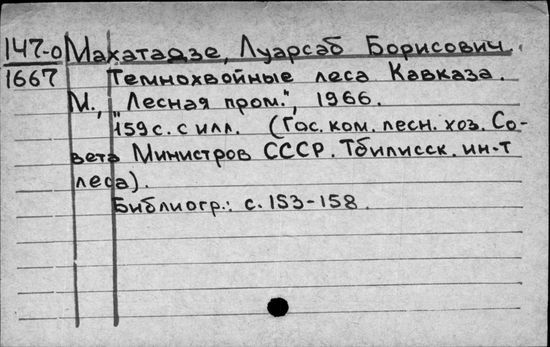 147-0 Махатадзе, Луарсаб Борисович.
1667 Темнохвойные леса Кавказа.
М., "Лесная пром.", 1966.
159 с. с илл. (Гос. ком. лесн. хоз. Со-
вета Министров СССР. Тбилисск. ин-т
леса).
Библиогр.: с. 153-158.